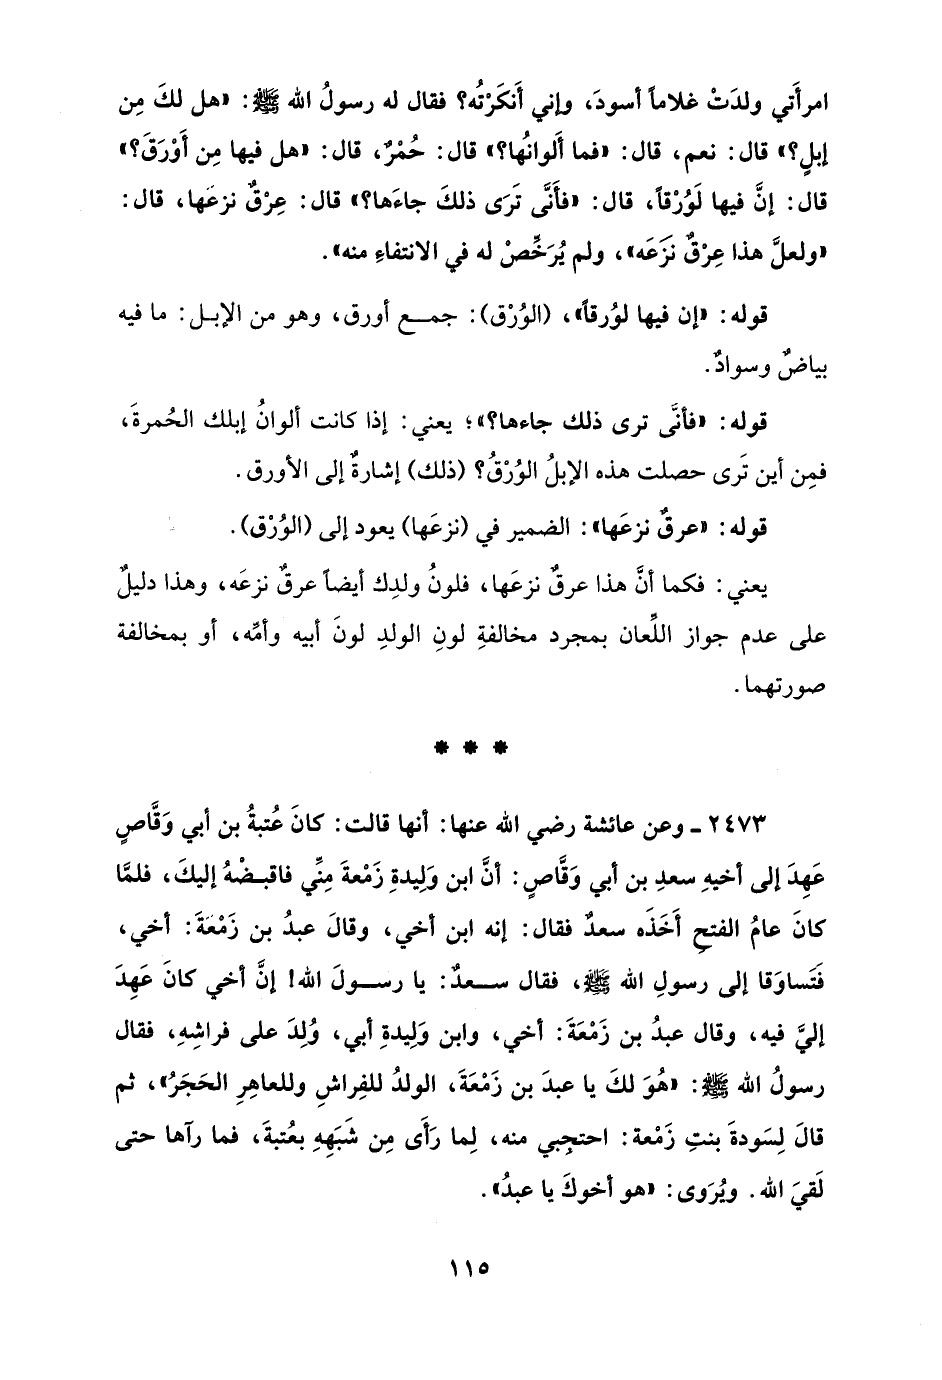 امرأَتي ولدَتْ غلاماً أسودَ، وإني أَنكَرْتُه؟ فقال له رسولُ الله ﷺ: «هل لكَ مِن
إبلٍ؟» قال: نعم، قال: «فما أَلوانُها؟» قال: حُمْرٌ، قال: «هل فيها مِن أَوْرَقَ؟»
قال: إنَّ فيها لَوُرْقاً، قال: «فأَنَّى تَرَى ذلكَ جاءَها؟» قال: عِرْقٌ نزعَها، قال:
«ولعلَّ هذا عِرْقٌ نَزَعَه»، ولم يُرَخِّصْ له في الانتفاءِ منه».
قوله: «إن فيها لوُرقاً»، (الوُرْق): جمع أورق، وهو من الإبل: ما فيه
بياضٌ وسوادٌ.
قوله: «فأنَّى ترى ذلك جاءها؟»؛ يعني: إذا كانت ألوانُ إبلك الحُمرةَ،
فمِن أين تَرى حصلت هذه الإبلُ الوُرْقُ؟ (ذلك) إشارةٌ إلى الأورق.
قوله: «عرقٌ نزعَها»: الضمير في (نزعَها) يعود إلى (الوُرْق).
يعني: فكما أنَّ هذا عرقٌ نزعَها، فلونُ ولدِك أيضاً عرقٌ نزعَه، وهذا دليلٌ
على عدم جواز اللِّعان بمجرد مخالفةِ لونِ الولدِ لونَ أبيه وأمِّه، أو بمخالفة
صورتهما.
* * *
٢٤٧٣ ـ وعن عائشة رضي الله عنها: أنها قالت: كانَ عُتبةُ بن أبي وَقَّاصٍ
عَهِدَ إلى أخيهِ سعدِ بن أبي وَقَّاصٍ: أنَّ ابن وَلِيدةِ زَمْعةَ مِنِّي فاقبضْهُ إليكَ، فلمَّا
كانَ عامُ الفتحِ أَخَذَه سعدٌ فقال: إنه ابن أخي، وقالَ عبدُ بن زَمْعَةَ: أخي،
فَتَساوَقا إلى رسولِ الله ﷺ، فقال سعدٌ: يا رسولَ الله! إنَّ أخي كانَ عَهِدَ
إليَّ فيه، وقال عبدُ بن زَمْعَةَ: أخي، وابن وَلِيدةِ أبي، وُلِدَ على فراشِهِ، فقال
رسولُ الله ﷺ: «هُوَ لكَ يا عبدَ بن زَمْعَةَ، الولدُ للفِراشِ وللعاهِرِ الحَجَرُ»، ثم
قالَ لِسَودةَ بنتِ زَمْعة: احتجِبي منه، لِما رَأَى مِن شَبَهِهِ بعُتبةَ، فما رآها حتى
لَقيَ الله. ويُرَوى: «هو أخوكَ يا عبدُ».
١١٥